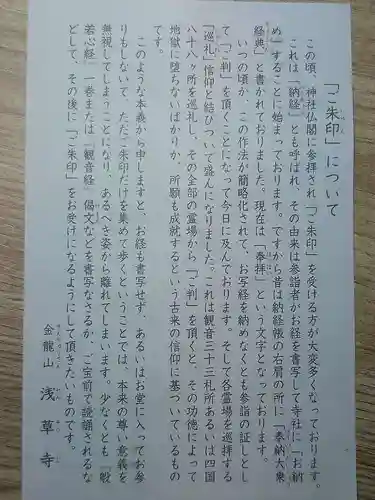 「ご朱印」について
この頃、神社仏閣に参拝され「ご朱印」を受ける方が大変多くなっております。
これは「納経」とも呼ばれ、その由来は参詣者がお経を書写して寺社に「お納
め」することに始まっております。ですから昔は納経帳の右肩の所に「奉納大乗
経典」と書かれておりました。現在は「奉拝」という文字となっております。
いつの頃か、この作法が簡略化されて、お写経を納めなくとも参詣の証しとし
て「ご判」を頂くことになって今日に及んでおります。そして各霊場を巡拝する
「巡礼」信仰と結びついて盛んになりました。これは観音三十三札所あるいは四国
八十八ヶ所を巡礼し、その全部の霊場から「ご判」を頂くと、その功徳によって
地獄に堕ちないばかりか、所願も成就するという古来の信仰に基づいているもの
です。
このような本義から申しますと、お経も書写せず、あるいはお堂に入ってお参
りもしないで、ただご朱印だけを集めて歩くということでは、本来の尊い意義を
無視してしまうことになり、あるべき姿から離れてしまいます。少なくとも『般
若心経』一巻または『観音経』偈文などを書写なさるか、ご宝前で読誦されるな
どして、その後に「ご朱印」をお受けになるようにして頂きたいものです。
金龍山 浅草寺